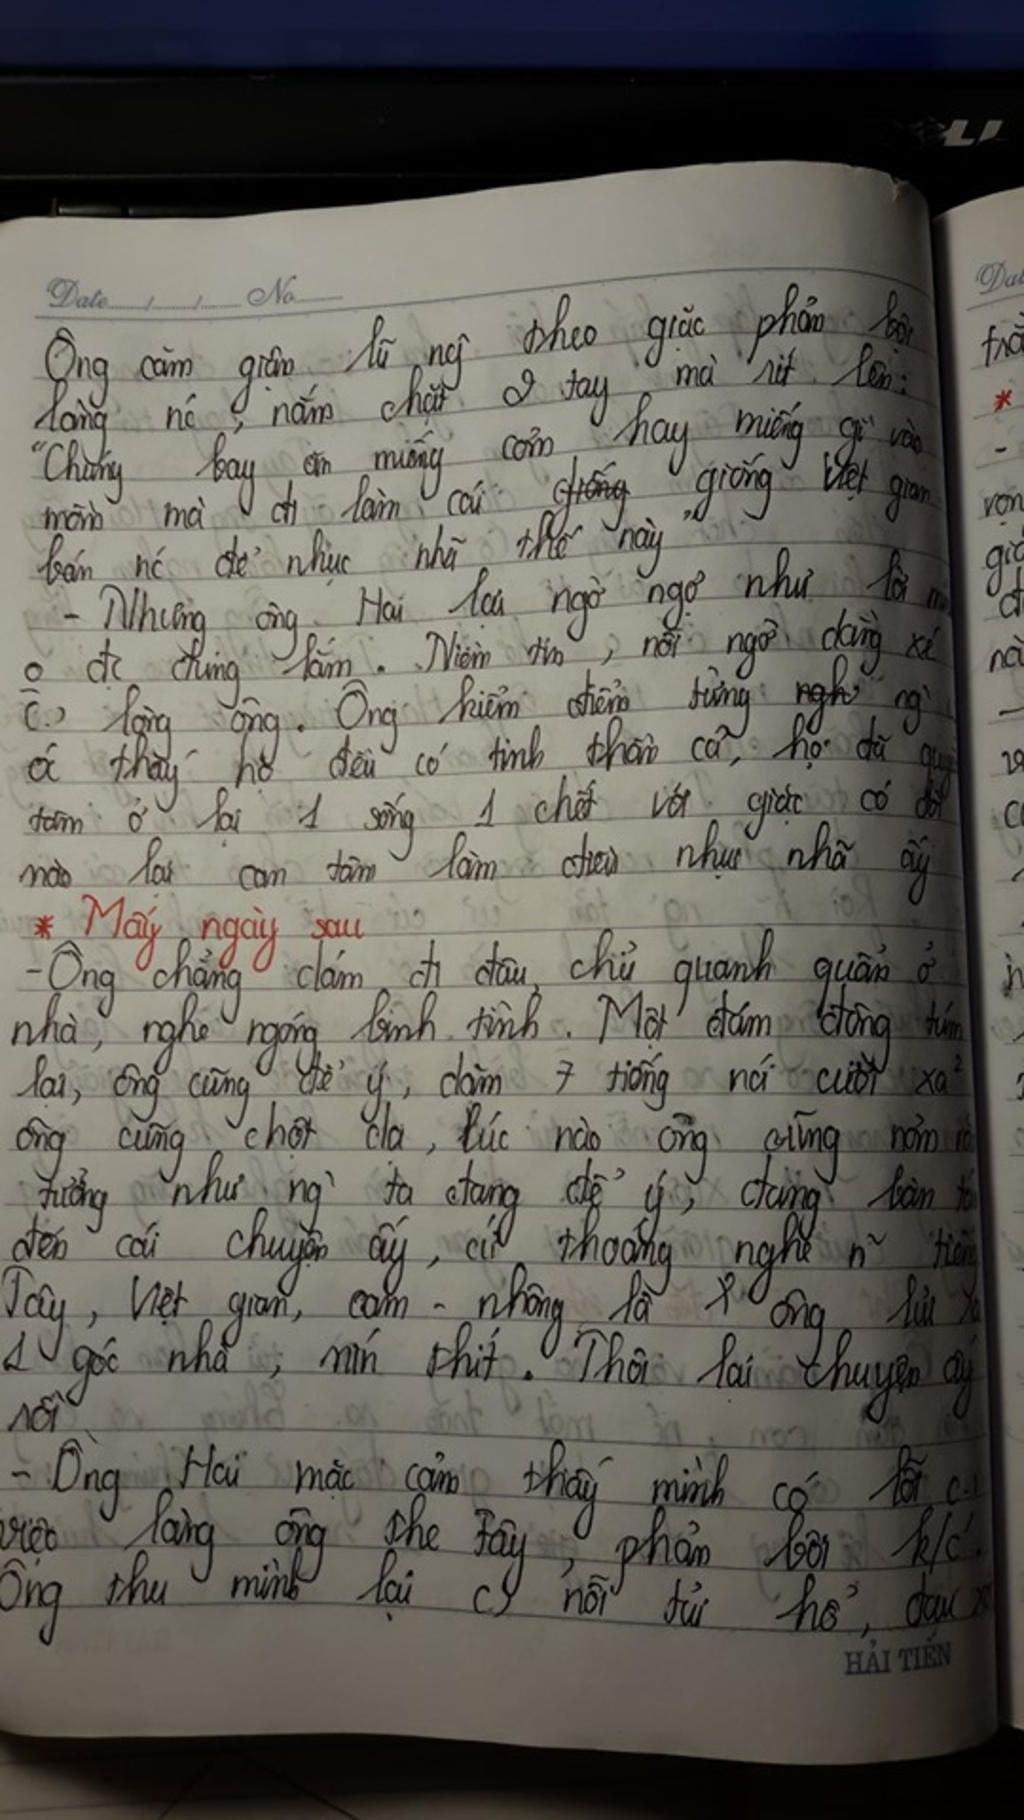 Date...../...../..... No.....
Ông căm giận lũ ng theo giặc phản bội
làng nc, nắm chặt 2 tay mà rít lên:
"Chúng bay ăn miếng cơm hay miếng gì vào
mồm mà đi làm cái giống giống Việt gian
bán nc để nhục nhã thế này"
- Nhưng ông Hai lại ngờ ngợ như lời
đc đúng lắm. Niềm tin, nỗi ngờ dằng xé
lòng ông. Ông kiểm điểm từng ngh ng`
thấy họ đều có tinh thần cả, họ đã
tâm ở lại 1 sống 1 chết với giặc có đời
nào lại cam tâm làm điều nhục nhã ấy
* Mấy ngày sau
- Ông chẳng dám đi đâu, chỉ quanh quẩn ở
nhà, nghe ngóng binh tình. Một đám đông túm
lại, ông cũng để ý, dăm 7 tiếng nói cười xa²
ông cũng chột dạ, lúc nào ông cũng nơm
tưởng như ng` ta đang để ý, đang bàn
đến cái chuyện ấy, cứ thoáng nghe n~ tiếng
Tây, Việt gian, cam - nhông là ông lủi
1 góc nhà, nín thít. Thôi lại chuyện ấy
rồi
- Ông Hai mặc cảm thấy mình có lỗi
việc làng ông the Tây, phản bội k/c.
Ông thu mình lại nỗi tủi hổ, đau
HẢI TIẾN